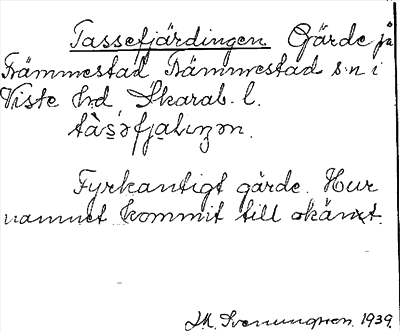 Tassefjärdingen Gärde på
Främmestad Främmestad s:n i
Viste hd, Skarab. l.
tàs̱əfja̱ɫıŋən.
Fyrkantigt gärde. Hur
namnet kommit till okänt.
1939.